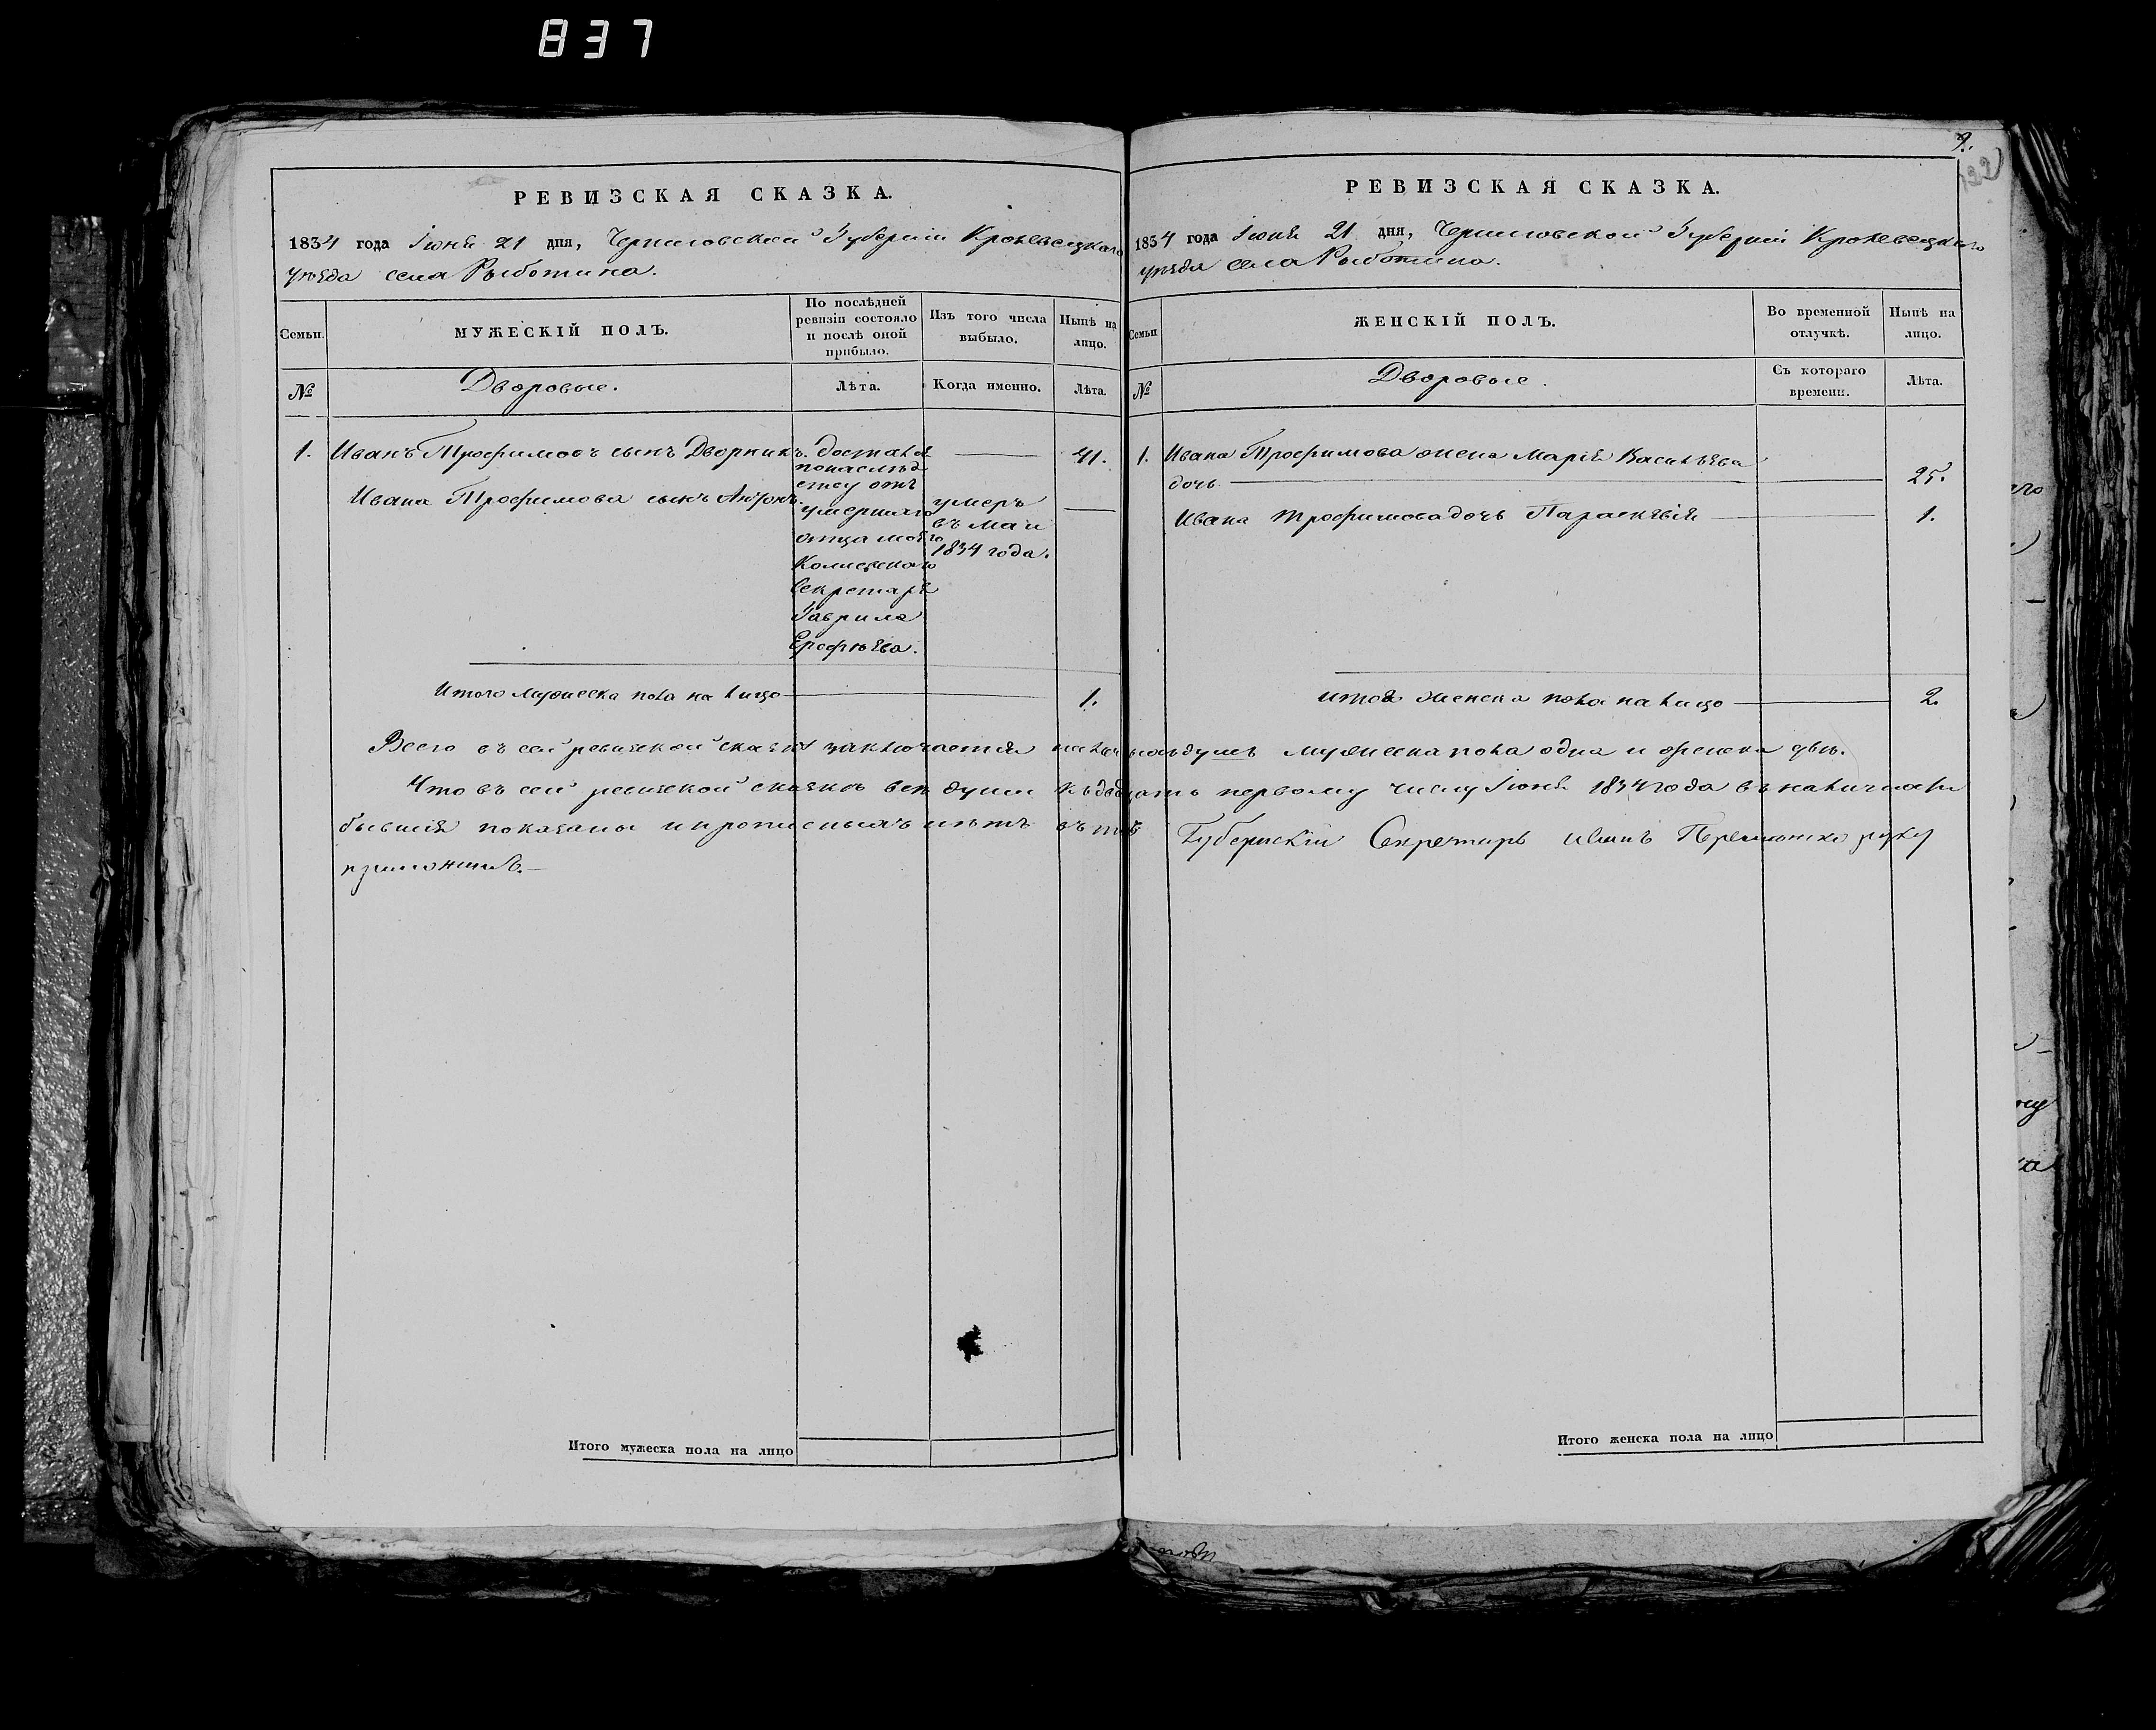 837
РЕВИЗСКАЯ СКАЗКА.
1834 года Іюня 21 дня, Черниговской Губерніи Кролевецкаго
уѣзда села Рыботина.
Семьи.
МУЖЕСКІЙ ПОЛЪ.
По послѣдней ревизіи состояло и послѣ оной прибыло.
Изъ того числа выбыло.
Нынѣ на лицо.
№
Дворовые.
Лѣта.
Когда именно.
Лѣта.
1. Иванъ Трофимовъ сынъ Дворникъ. ——— 41.
досталсѧ
понаслѣд
ству отъ
умершаго
отца моего
Колежскаго
Секретаря
Гаврила
Ерофѣева.
Ивана Трофимова сынъ Антонъ.
умеръ
въ маи
1834 года.
Итого мужеска пола на лицо ——— 1.
9.
122
РЕВИЗСКАЯ СКАЗКА.
1834 года Іюня 21 дня, Черниговской Губерніи Кролевецкаго
уѣзда села Рыботина.
Семьи
ЖЕНСКІЙ ПОЛЪ.
Во временной отлучкѣ.
Нынѣ на лицо.
№
Дворовые.
Съ котораго времени.
Лѣта.
1. Ивана Трофимова жена Марія Васильева
дочь ——— 25.
Ивана Трофимова дочь Параскевія ——— 1.
итого женска пола на лицо ——— 2.
Всего въ сей ревизской сказкѣ заключается на лицо душъ мужеска пола одна и женска двѣ.
Что въ сей ревизской сказкѣ всѣ души къ двадцать первому числу Іюня 1834 года въ наличности
бывшія показаны и прописныхъ нѣтъ въ томъ Губернскій Секретарь Иванъ руку
приложилъ.—
Итого мужеска пола на лицо
Итого женска пола на лицо